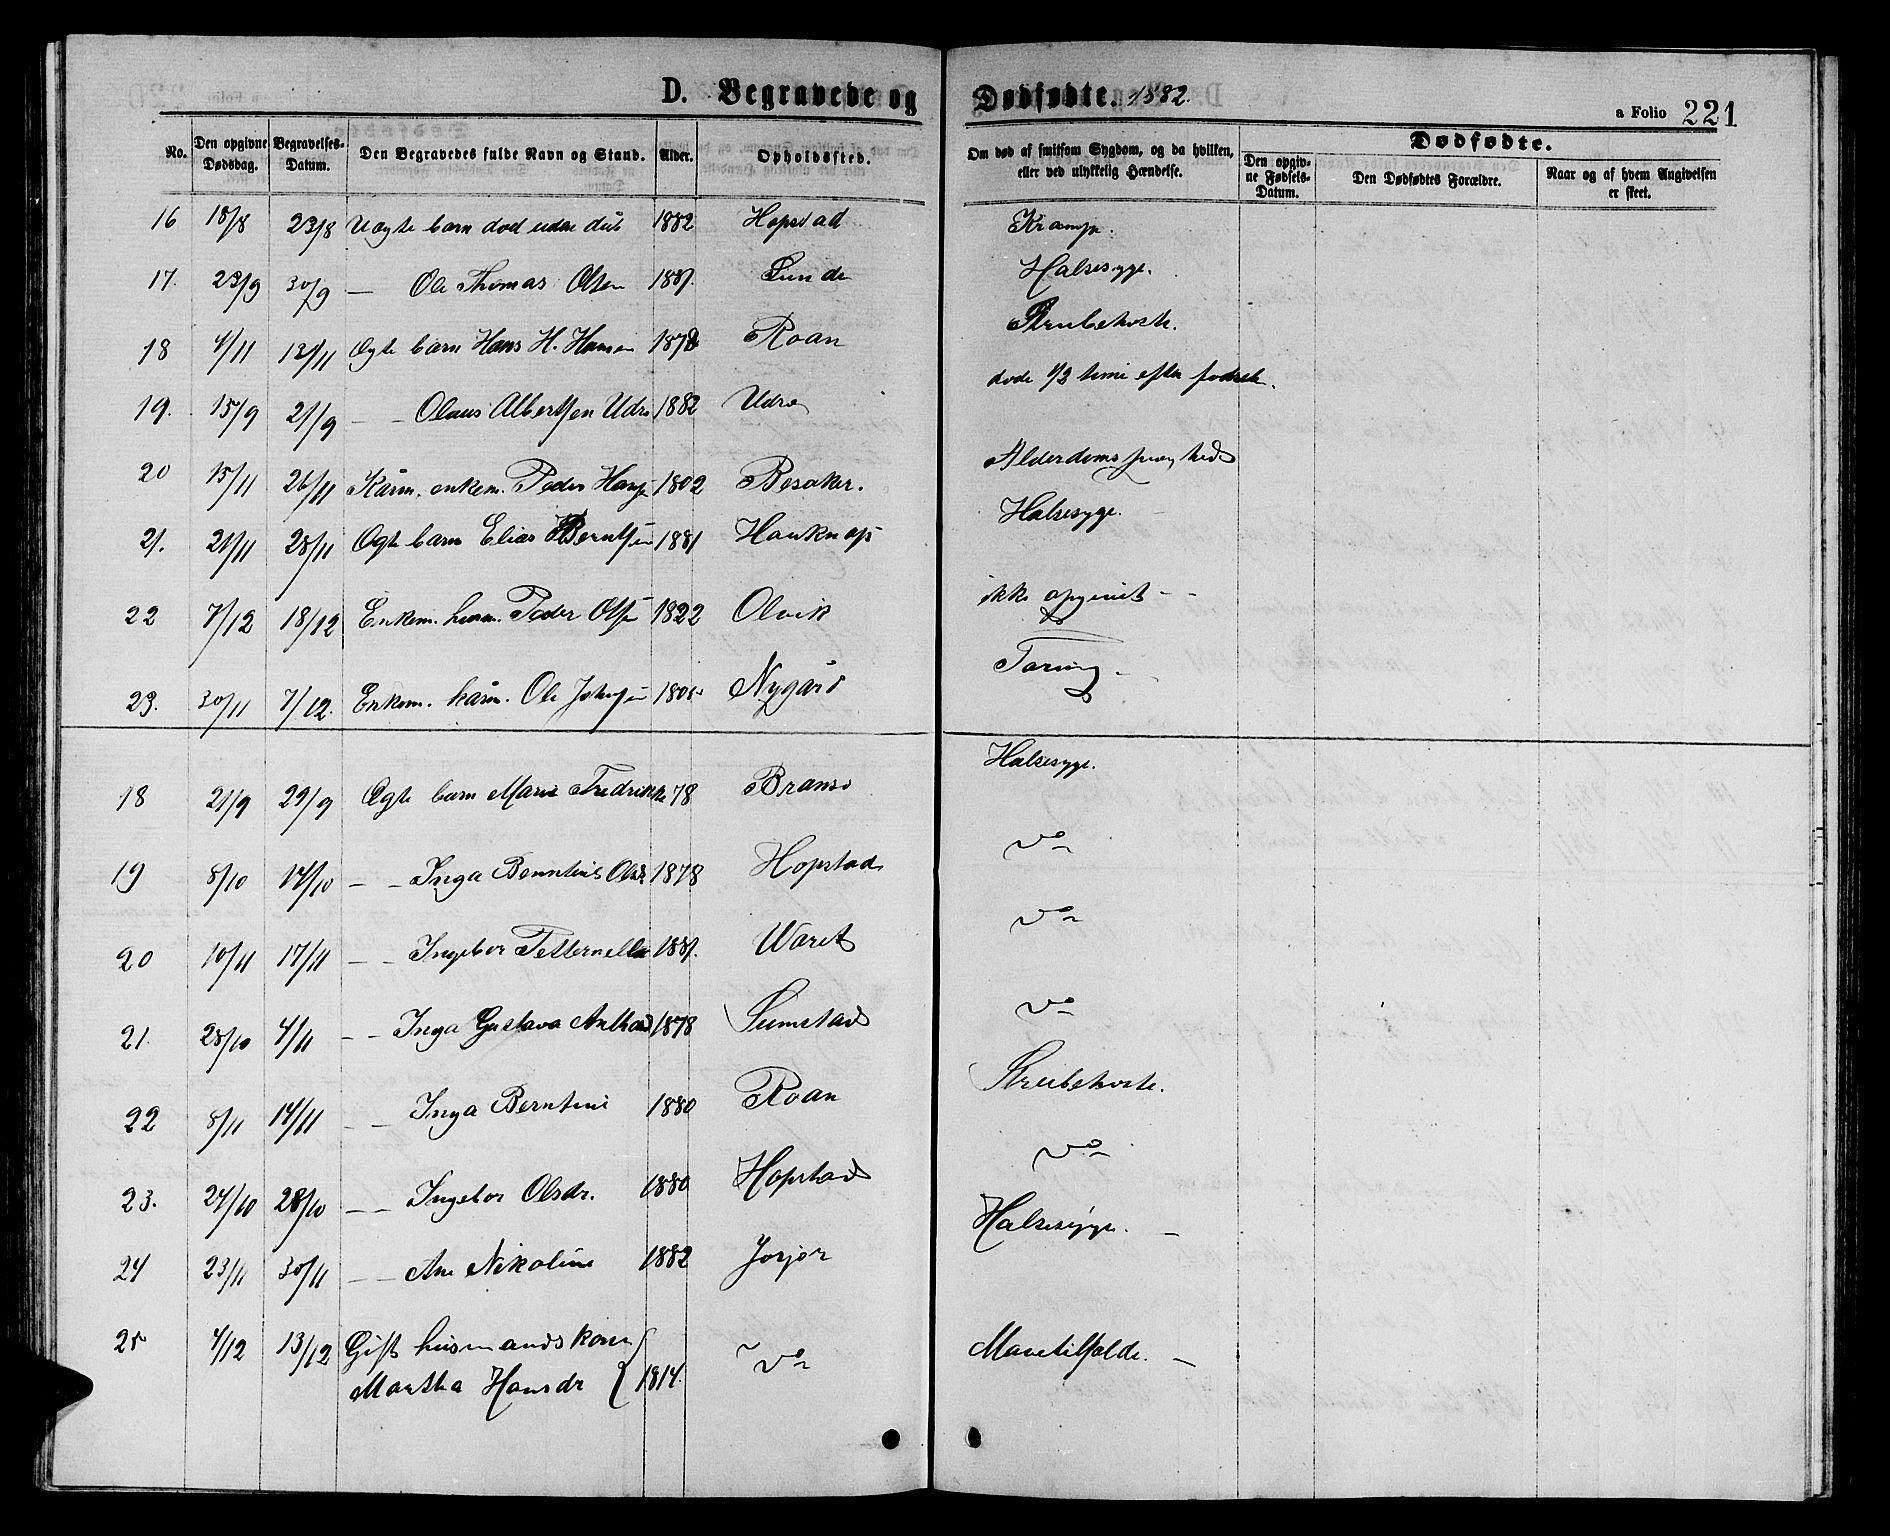 D. Begravede og Dødfødte. 1882.
a Folio 221
No. Den opgivne Dødsdag. Begravelses-Datum. Den Begravedes fulde Navn og Stand. Alder. Opholdssted. Om død af smitsom Sygdom, og da hvilken, eller ved ulykkelig Hændelse. Dødfødte. Den opgivne Fødsels-Datum. Den Dødfødtes Forældre. Naar og af hvem Angivelsen er skeet.
16 18/8 23/8 Uægte barn død uden 1882 Hopstad Krampe.
17. 23/9 30/9 — Ole Thomas Olsen 1881. Sunde Halsesyge.
18 4/11 13/11 Ægte barn Hans H. Hansen Roan Strubehoste.
19. 15/9 21/9 — — Olaus Albertsen Udrø 1882 Udrø døde 1/2 time efter fødsel.
20 15/11 26/11 Kårm. enkem. Peder Hans 1802 Besaker. Alderdomssvaghed
21. 21/11 28/11 Ægte barn Elias Berntsen 1881 Hauknæs Halsesyge.
22 7/12 18/12 Enkem. husm. Peder Olsen 1822 Olvik ikke opgivet - -
23. 30/11 7/12. Enkem. kårm. Ole Johnsen Nygård Tæring -
18 21/9 29/9 Ægte barn Marie Fredrikke 78 Bransø Halsesyge.
19 8/10 14/10 — — Inga Berntine Olsd. 1878 Hopstad do
20 10/11 17/11 — — Ingebor Petternella 1881. Waret do
21. 28/10 4/11 — — Inga Gustava 1878 Sumstad do
22 8/11 14/11 — — Inga Berntine 1880 Roan Strubehoste.
23. 24/10 28/10 — — Ingebor Olsdr. 1880 Hopstad do
24 23/11 30/11 — — Ane Nikoline 1882 Jøssjør Halsesyge. —
25 4/12 13/12 Gift husmandskone
Martha Hansdr 1814. do Mavetilfælde. —